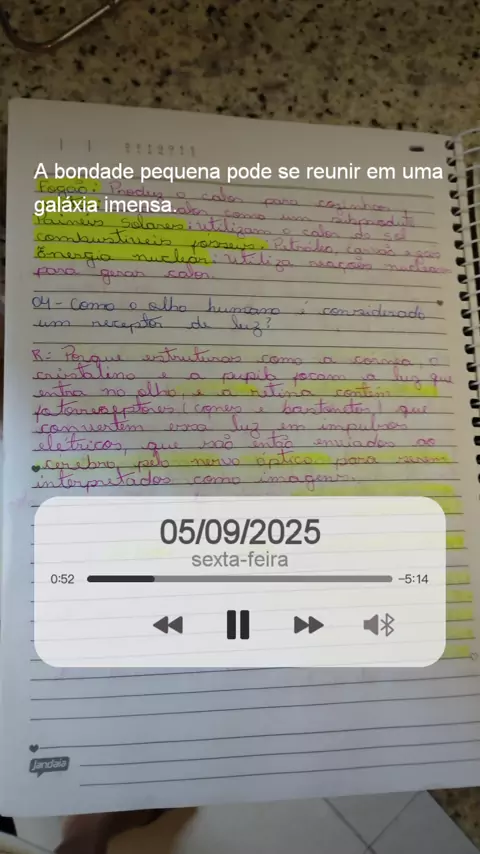 A bondade pequena pode se reunir em uma
galáxia imensa.
Fogão: Produz o calor para cozinhar.
calor como um subproduto
Painéis solares: utilizam o calor do sol
combustíveis fósseis: Petróleo, carvão e gás
Energia nuclear: Utiliza reações nucleares
para gerar calor.
04 - Como o olho humano é considerado
um receptor de luz?
R: Porque estruturas como a córnea, o
cristalino e a pupila focam a luz que
entra no olho, e a retina contém
fotorreceptores (cones e bastonetes) que
convertem essa luz em impulsos
elétricos, que são então enviados ao
cérebro pelo nervo óptico para serem
interpretados como imagens.
05/09/2025
sexta-feira
0:52
-5:14
Jandaia